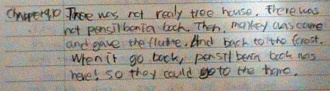 Chapter 10 There was not realy tree house. There was
not pensilbenia back. Then, monkey was came
and gave the flute. And back to the forest.
When it go back, pensilbenia back was
here! so they could go to the home.